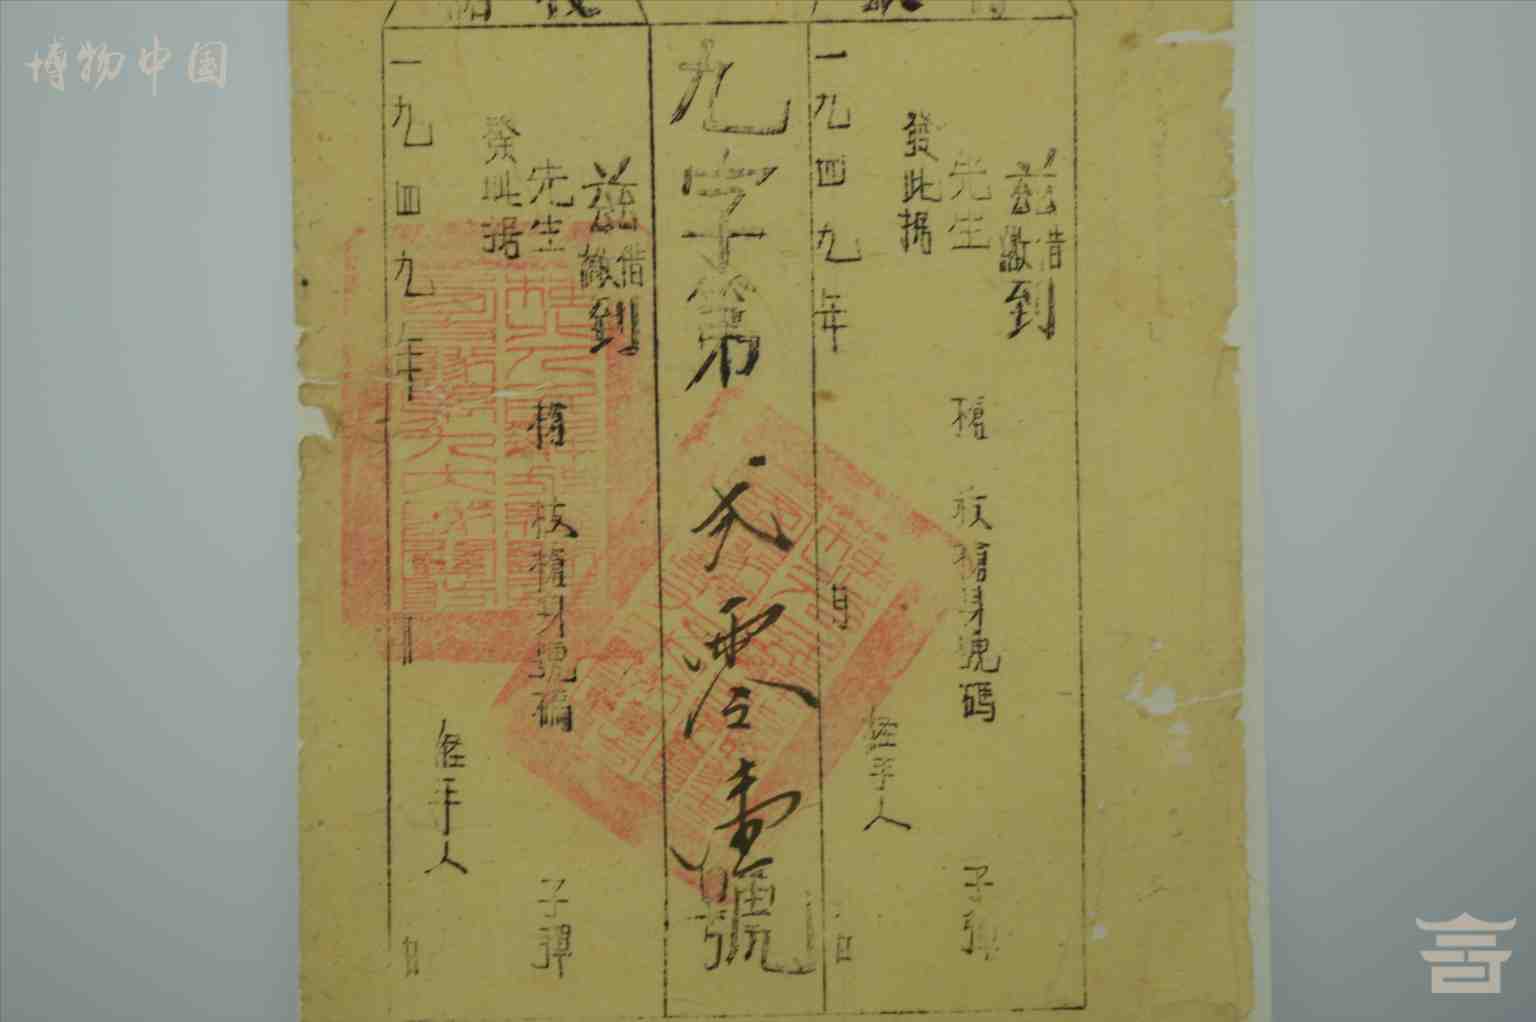 博物中国
茲
借
繳
到
先生
槍 枝槍身號碼 子彈
發此据
一九四九年 月 日
經手人
九字第弍零壹號
茲
借
繳
到
先生
槍 枝槍身號碼 子彈
發此据
一九四九年 月 日
經手人